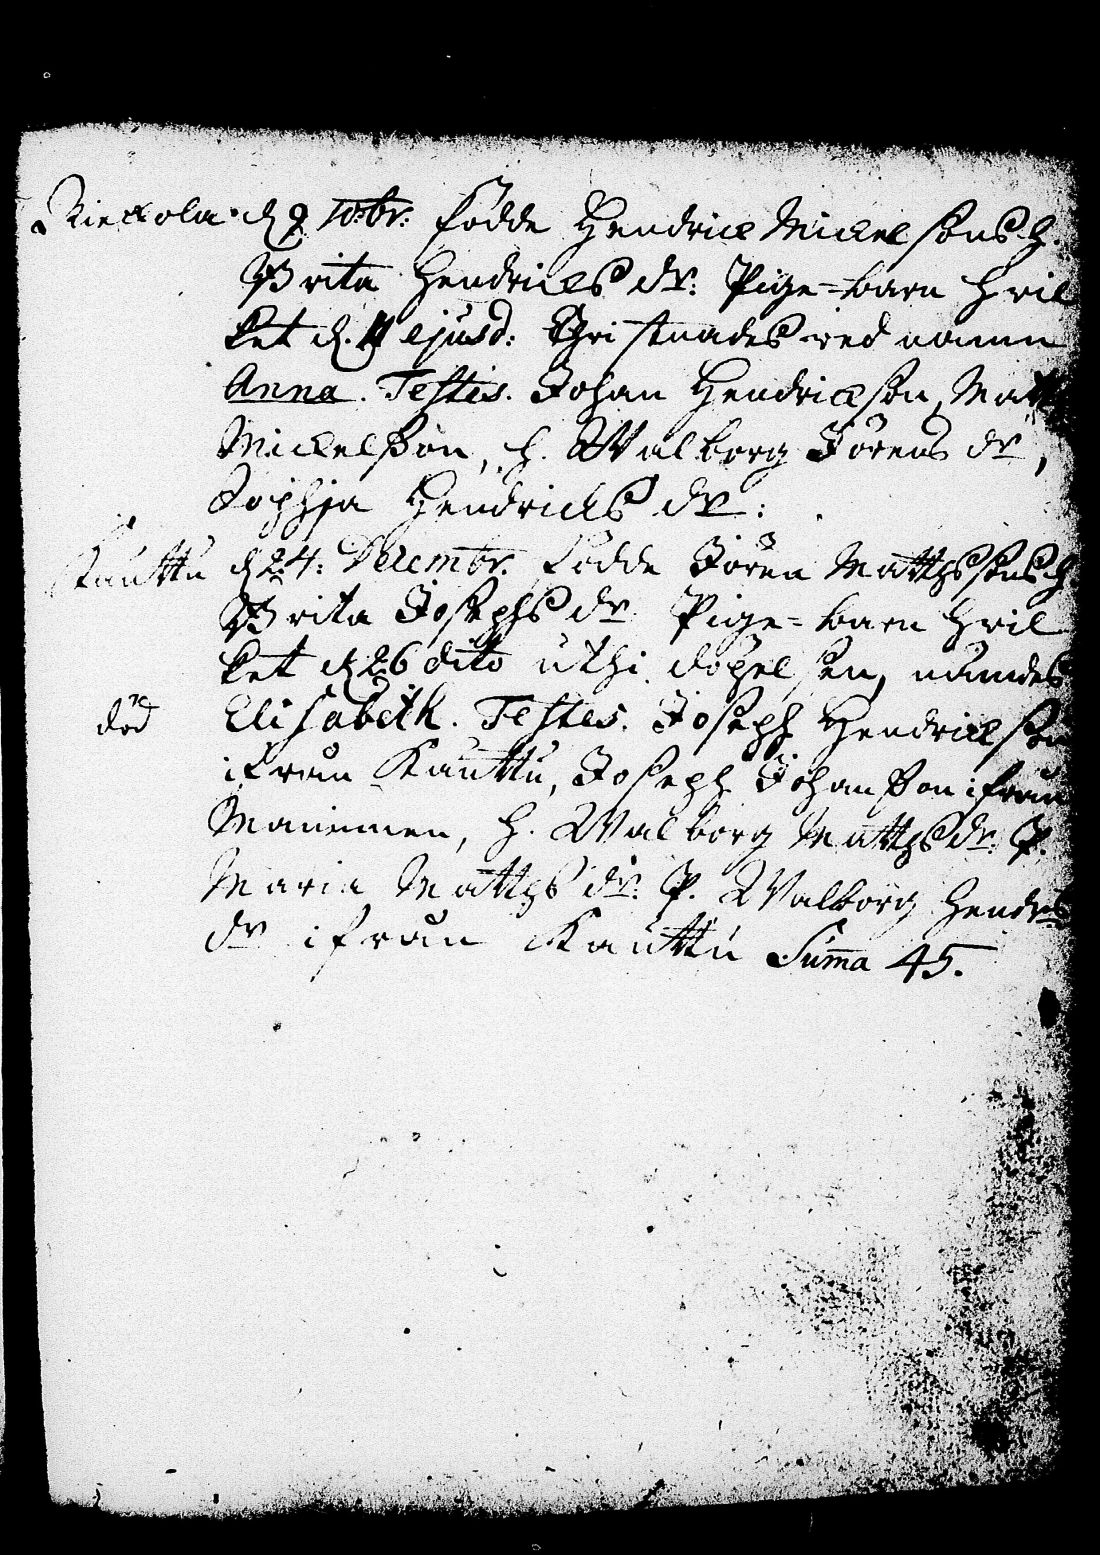 Rieckola d 9 10:br: födde Hendrick Mickelsons h.
Brita Hendricks dr: Pige=barn hvil
ket d. 11 ejusd: Christnades wed namn
Anna. Testes. Johan Hendrickson, Matts
Mickelsson, h. Walborg Jörens dr,
Sophja Hendricks dr:
Kauttu d 24: Decembr. födde Jören Matthssons h
Brita Josephs dr Pige=barn hvil
ket d 26 dito uthi döpelsen, nämdes
död Elisabeth. Testes. Joseph Hendrickson
ifrån Kauttu, Joseph Johansson ifrån
h. Walborg Matths dr. P.
Maria Matths dr. P. Walborg Hendrs
dr ifrån Kauttu Summa 45.